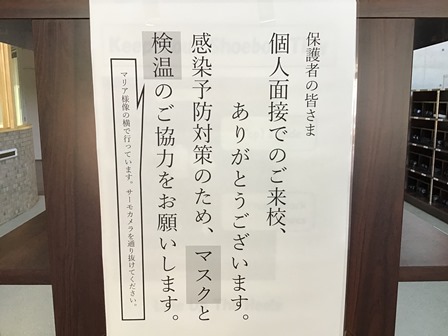 保護者の皆さま
個人面接でのご来校、
ありがとうございます。
感染予防対策のため、マスクと
検温のご協力をお願いします。
マリア様像の横で行っています。サーモカメラを通り抜けてください。